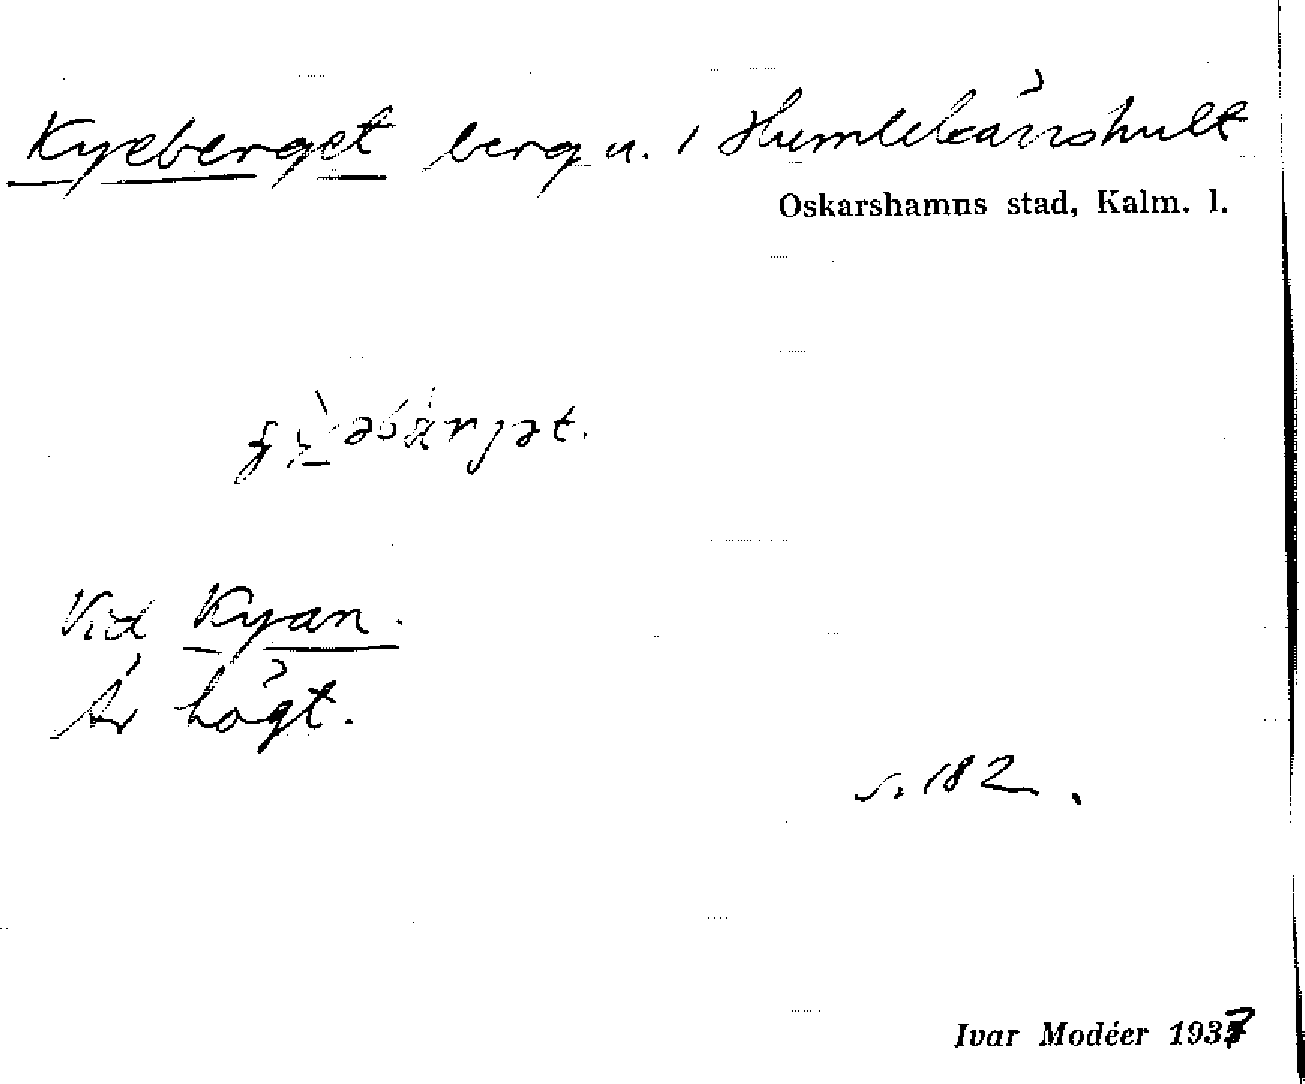 Kyeberget berg u. i Humlekärrshult
Oskarshamns stad, Kalm. l.
Vid Kyan.
Är högt.
s. 182.
Ivar Modéer 1937